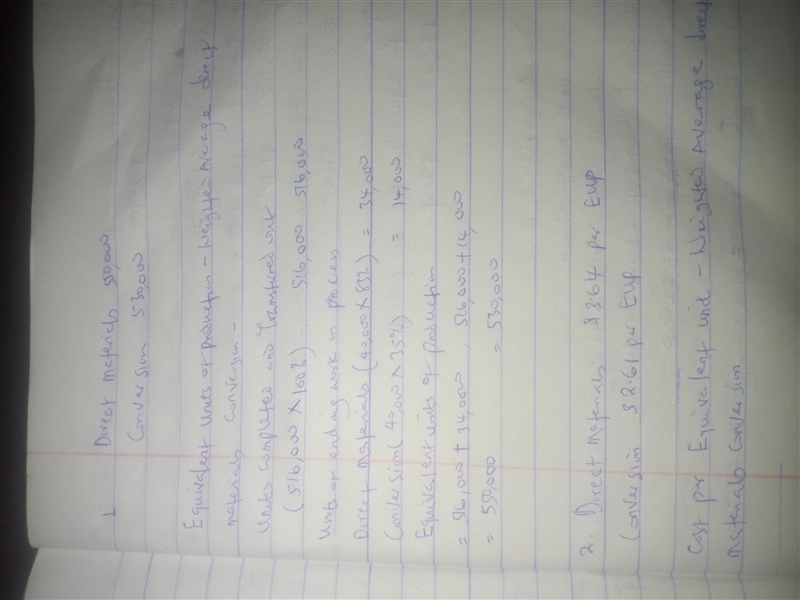 1 Direct Materials 550,000
Conversion 530,000
Equivalent Units of production - Weighted Average direct
materials Conversion -
Units completed and Transferred out
(516,000 × 100%) 516,000 516,000
Units of ending work in process
Direct materials (40,000 × 85%) = 34,000
Conversion (40,000 × 35%) = 14,000
Equivalent units of production
= 516,000 + 34,000, 516,000 + 14,000
= 550,000 = 530,000
2. Direct materials $3.64 per EUP
Conversion $2.61 per EUP
Cost per Equivalent Unit - Weighted Average direct
materials Conversion